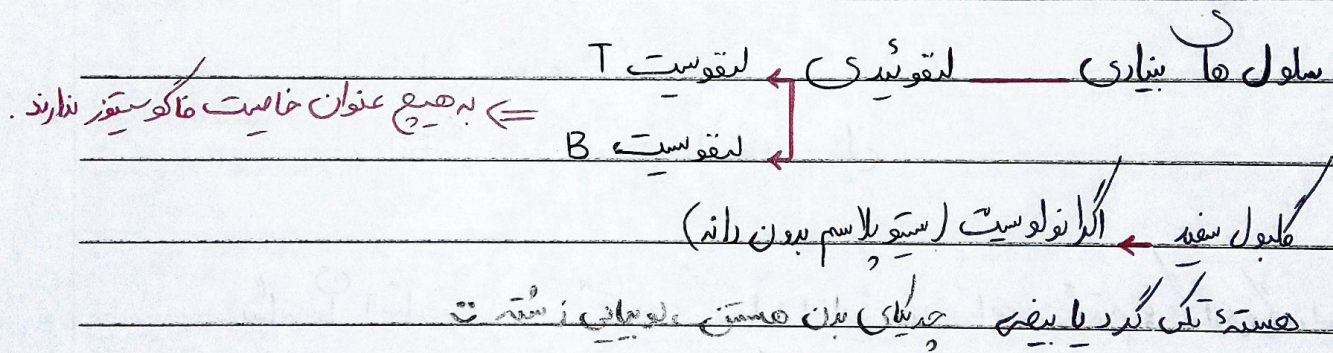 سلول های بنیادی — لنفوئیدی ← لنفوسیت T
⇐ به هیچ عنوان خاصیت فاگوسیتوز ندارند.
← لنفوسیت B
گلبول سفید ← اگرانولوسیت (سیتوپلاسم بدون دانه)
هستهٔ تکی گرد یا بیضی چریکای بدن هستن